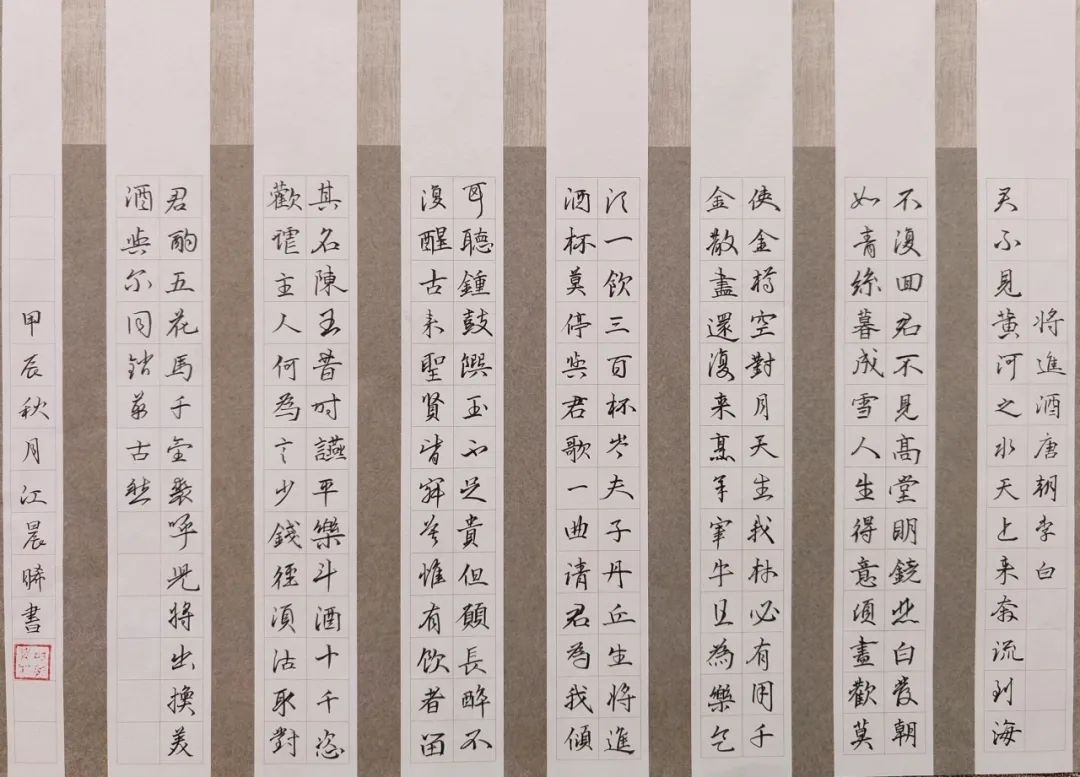 將進酒唐朝李白
君不見黃河之水天上来奔流到海
不復回君不見高堂明鏡悲白發朝
如青絲暮成雪人生得意須盡歡莫
使金樽空對月天生我材必有用千
金散盡還復来烹羊宰牛且為樂会
須一飲三百杯岑夫子丹丘生將進
酒杯莫停與君歌一曲請君為我傾
耳聽鍾鼓饌玉不足貴但願長醉不
復醒古来聖賢皆寂寞惟有飲者留
其名陳王昔时讌平樂斗酒十千恣
歡謔主人何為言少錢徑須沽取對
君酌五花馬千金裘呼兒將出換美
酒與尔同銷萬古愁
甲辰秋月江晨晞書